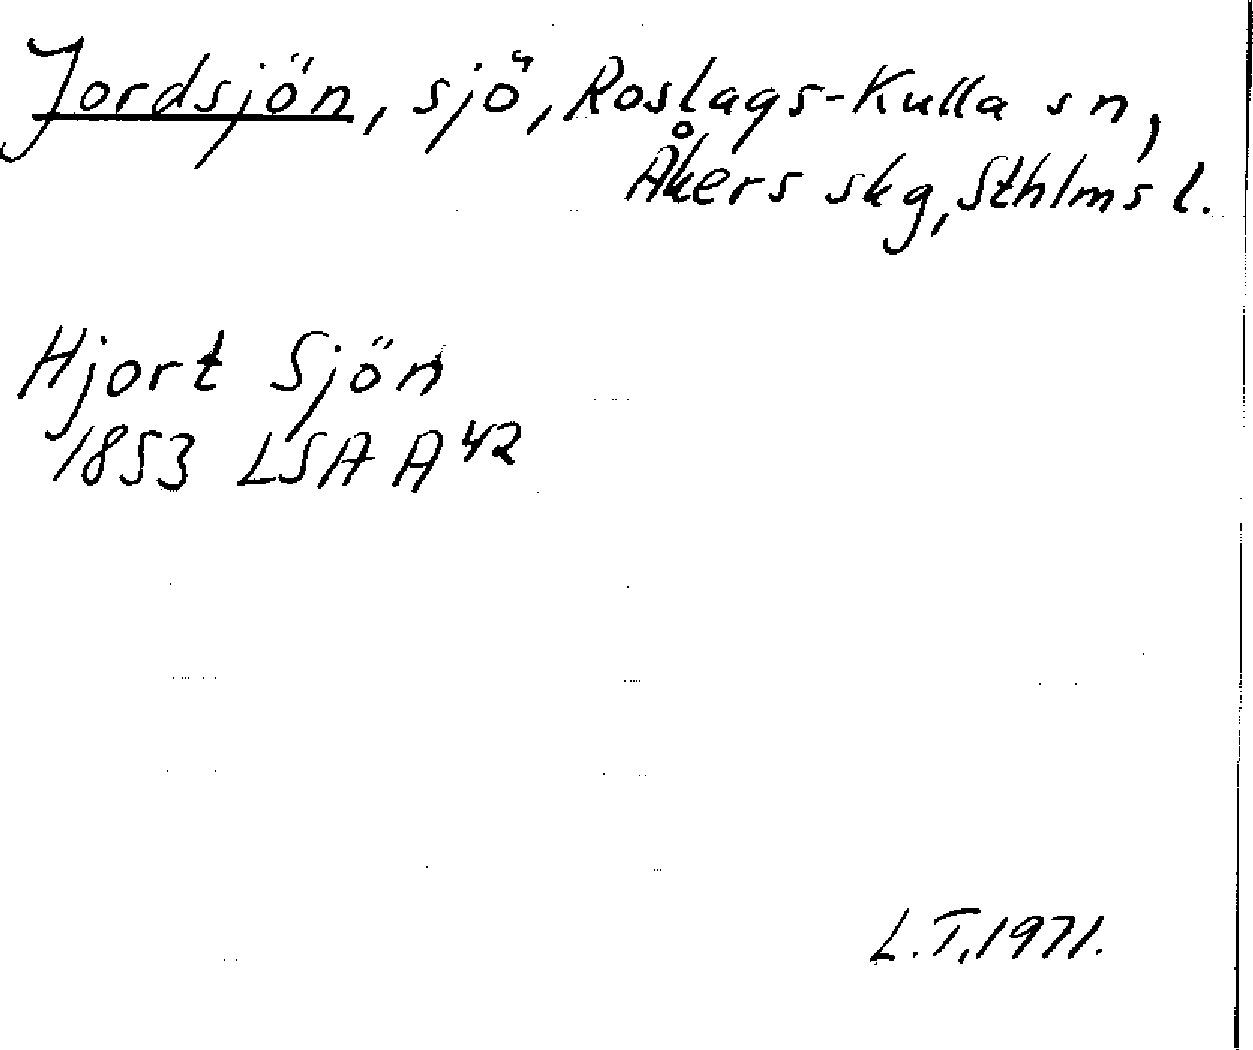 Jordsjön, sjö, Roslags-Kulla sn,
Åkers skg, Sthlms l.
Hjort Sjön
1853 LSA A42
L.T. 1971.